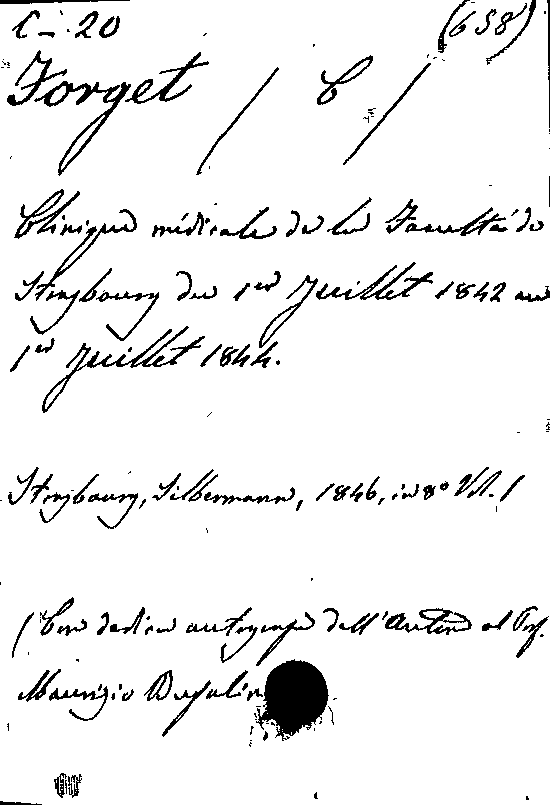 C-. 20 (658)
Forget / C /
Clinique médicale de la Faculté de
Strasbourg du 1er Juillet 1842 au
1er Juillet 1844.
Strasbourg, Silbermann, 1846, in 8° Vol. 1
(Con dedica autografa dell'Autore al Prof.
Maurizio